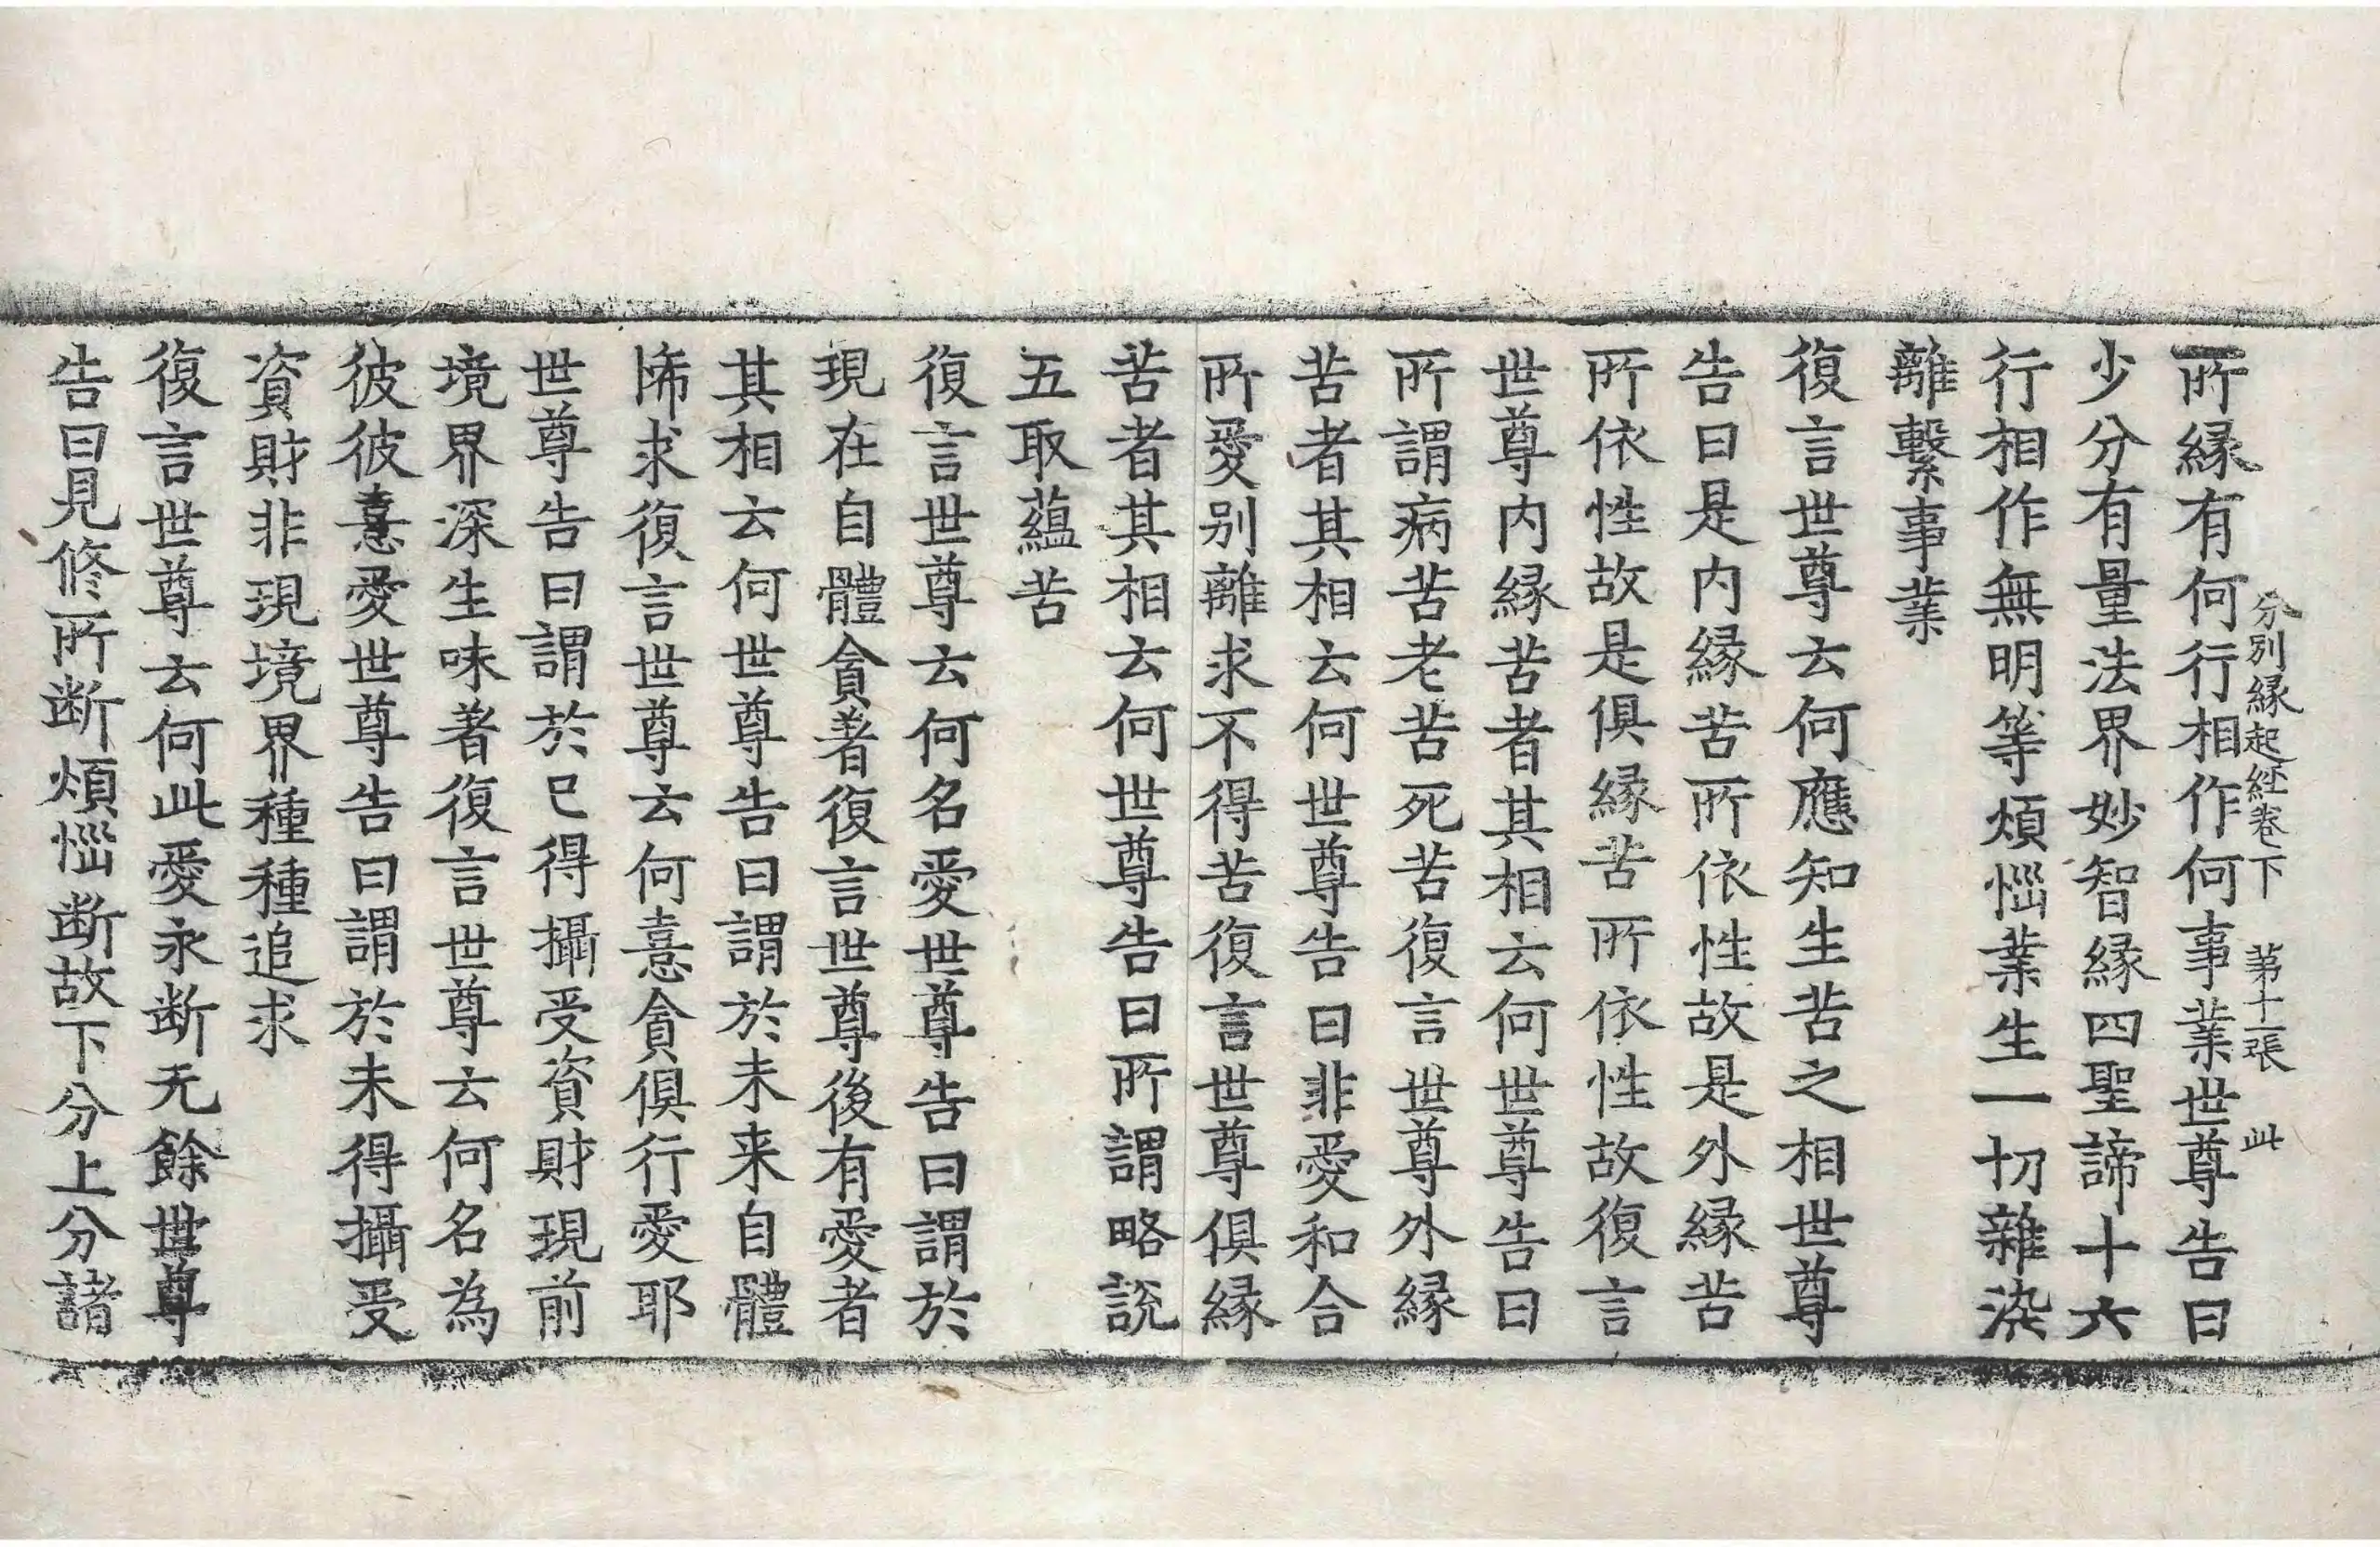 分別縁起経卷下 第十二張 此
所縁有何行相作何事業世尊告曰
少分有量法界妙智縁四聖諦十六
行相作無明等煩惱業生一切雜染
離繫事業
復言世尊云何應知生苦之相世尊
告曰是内縁苦所依性故是外縁苦
所依性故是俱縁苦所依性故復言
世尊内縁苦者其相云何世尊告曰
所謂病苦老苦死苦復言世尊外縁
苦者其相云何世尊告曰非愛和合
所愛别離求不得苦復言世尊俱縁
苦者其相云何世尊告曰所謂略説
五取蘊苦
復言世尊云何名愛世尊告曰謂於
現在自體貪著復言世尊後有愛者
其相云何世尊告曰謂於未来自體
悕求復言世尊云何憙貪俱行愛耶
世尊告曰謂於已得攝受資財現前
境界深生味著復言世尊云何名為
彼彼憙愛世尊告曰謂於未得攝受
資財非現境界種種追求
復言世尊云何此愛永断无餘世尊
告曰見修所断煩惱断故下分上分諸